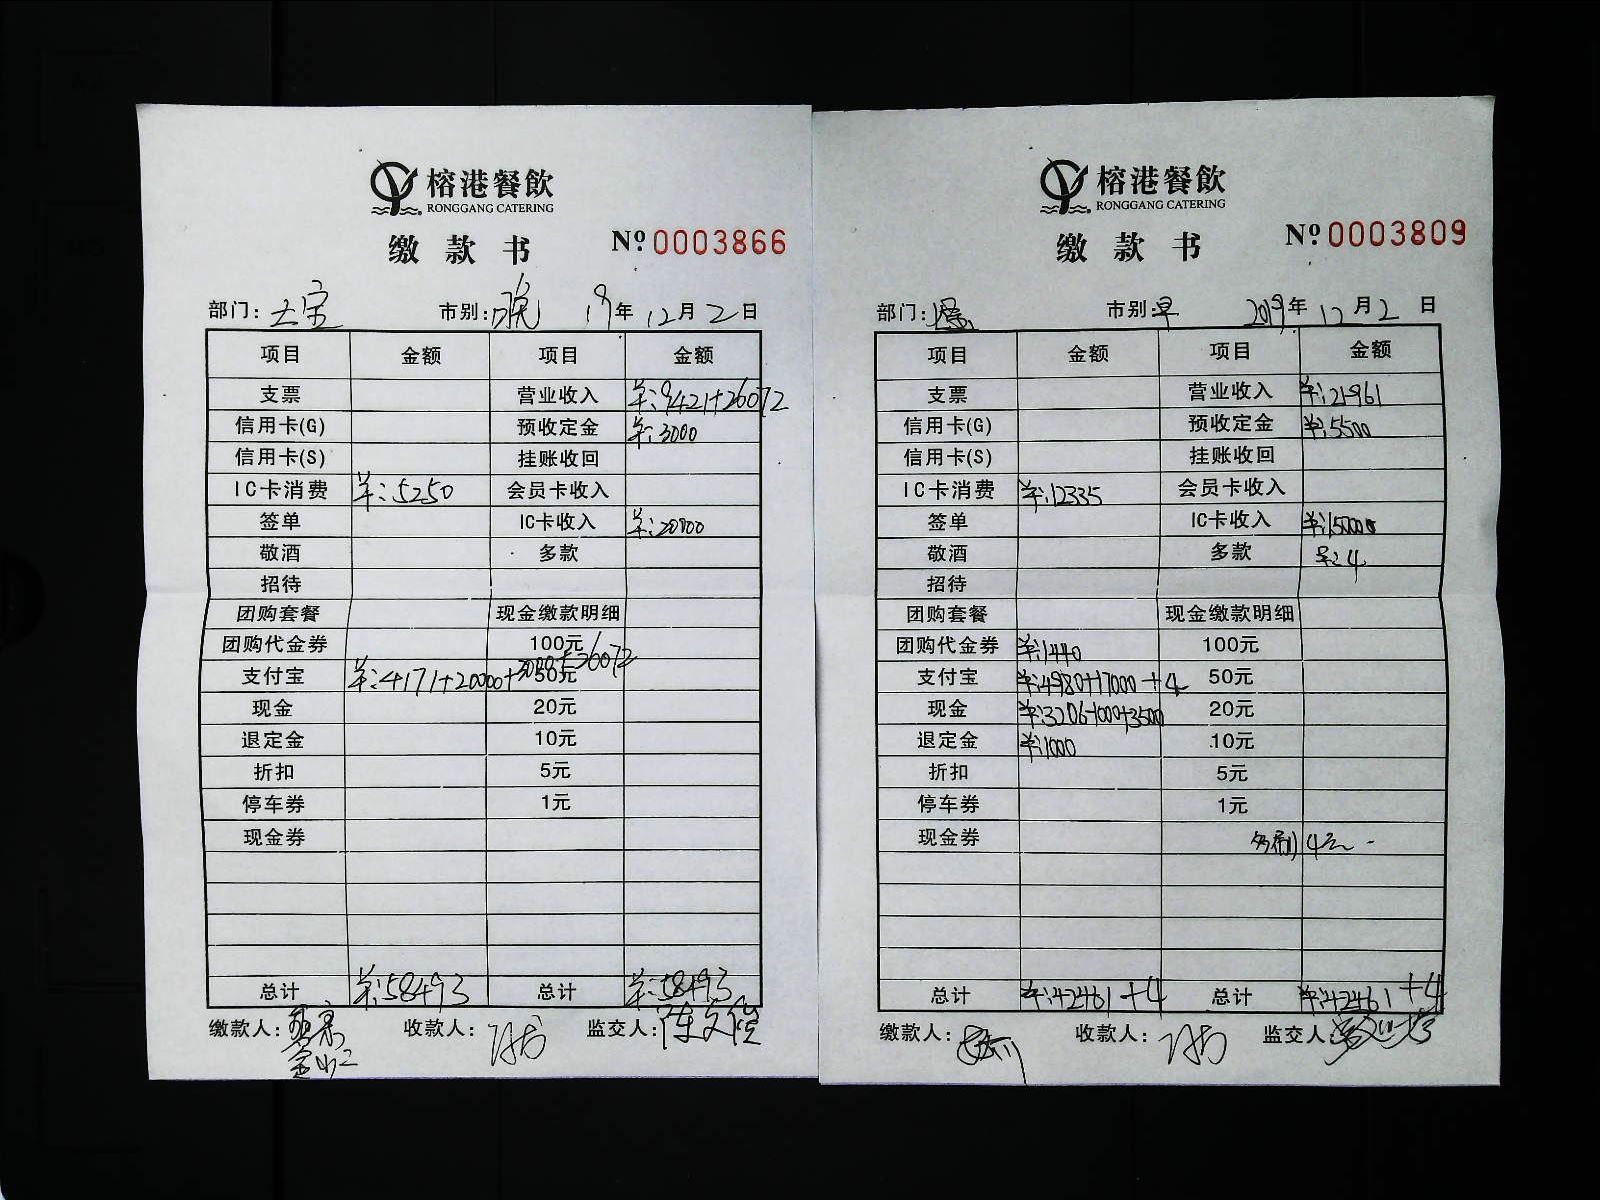 榕港餐飲
RONGGANG CATERING
缴款书
Nº 0003866
部门: 大宝 市别: 晚 19年 12月 2日
项目 金额 项目 金额
支票 营业收入 羊:9421+26072
信用卡(G) 预收定金 羊:3000
信用卡(S) 挂账收回
IC卡消费 羊:5250 会员卡收入
签单 IC卡收入 羊:20000
敬酒 多款
招待
团购套餐 现金缴款明细
团购代金券 100元
支付宝 羊:4171+20000+3000+26072 50元
现金 20元
退定金 10元
折扣 5元
停车券 1元
现金券
总计 羊:58493 总计 羊:58493
缴款人: 收款人: 监交人: 陈文
榕港餐飲
RONGGANG CATERING
缴款书
Nº 0003809
部门: 市别: 早 2019年 12月 2日
项目 金额 项目 金额
支票 营业收入 羊:21961
信用卡(G) 预收定金 羊:5500
信用卡(S) 挂账收回
IC卡消费 羊:12335 会员卡收入
签单 IC卡收入 羊:15000
敬酒 多款 羊:4
招待
团购套餐 现金缴款明细
团购代金券 羊:1440 100元
支付宝 羊:4980+17000+4 50元
现金 羊:3206-1000+3500 20元
退定金 羊:1000 10元
折扣 5元
停车券 1元
现金券 多刷4元
总计 羊:42461+4 总计 羊:42461+4
缴款人: 收款人: 监交人: